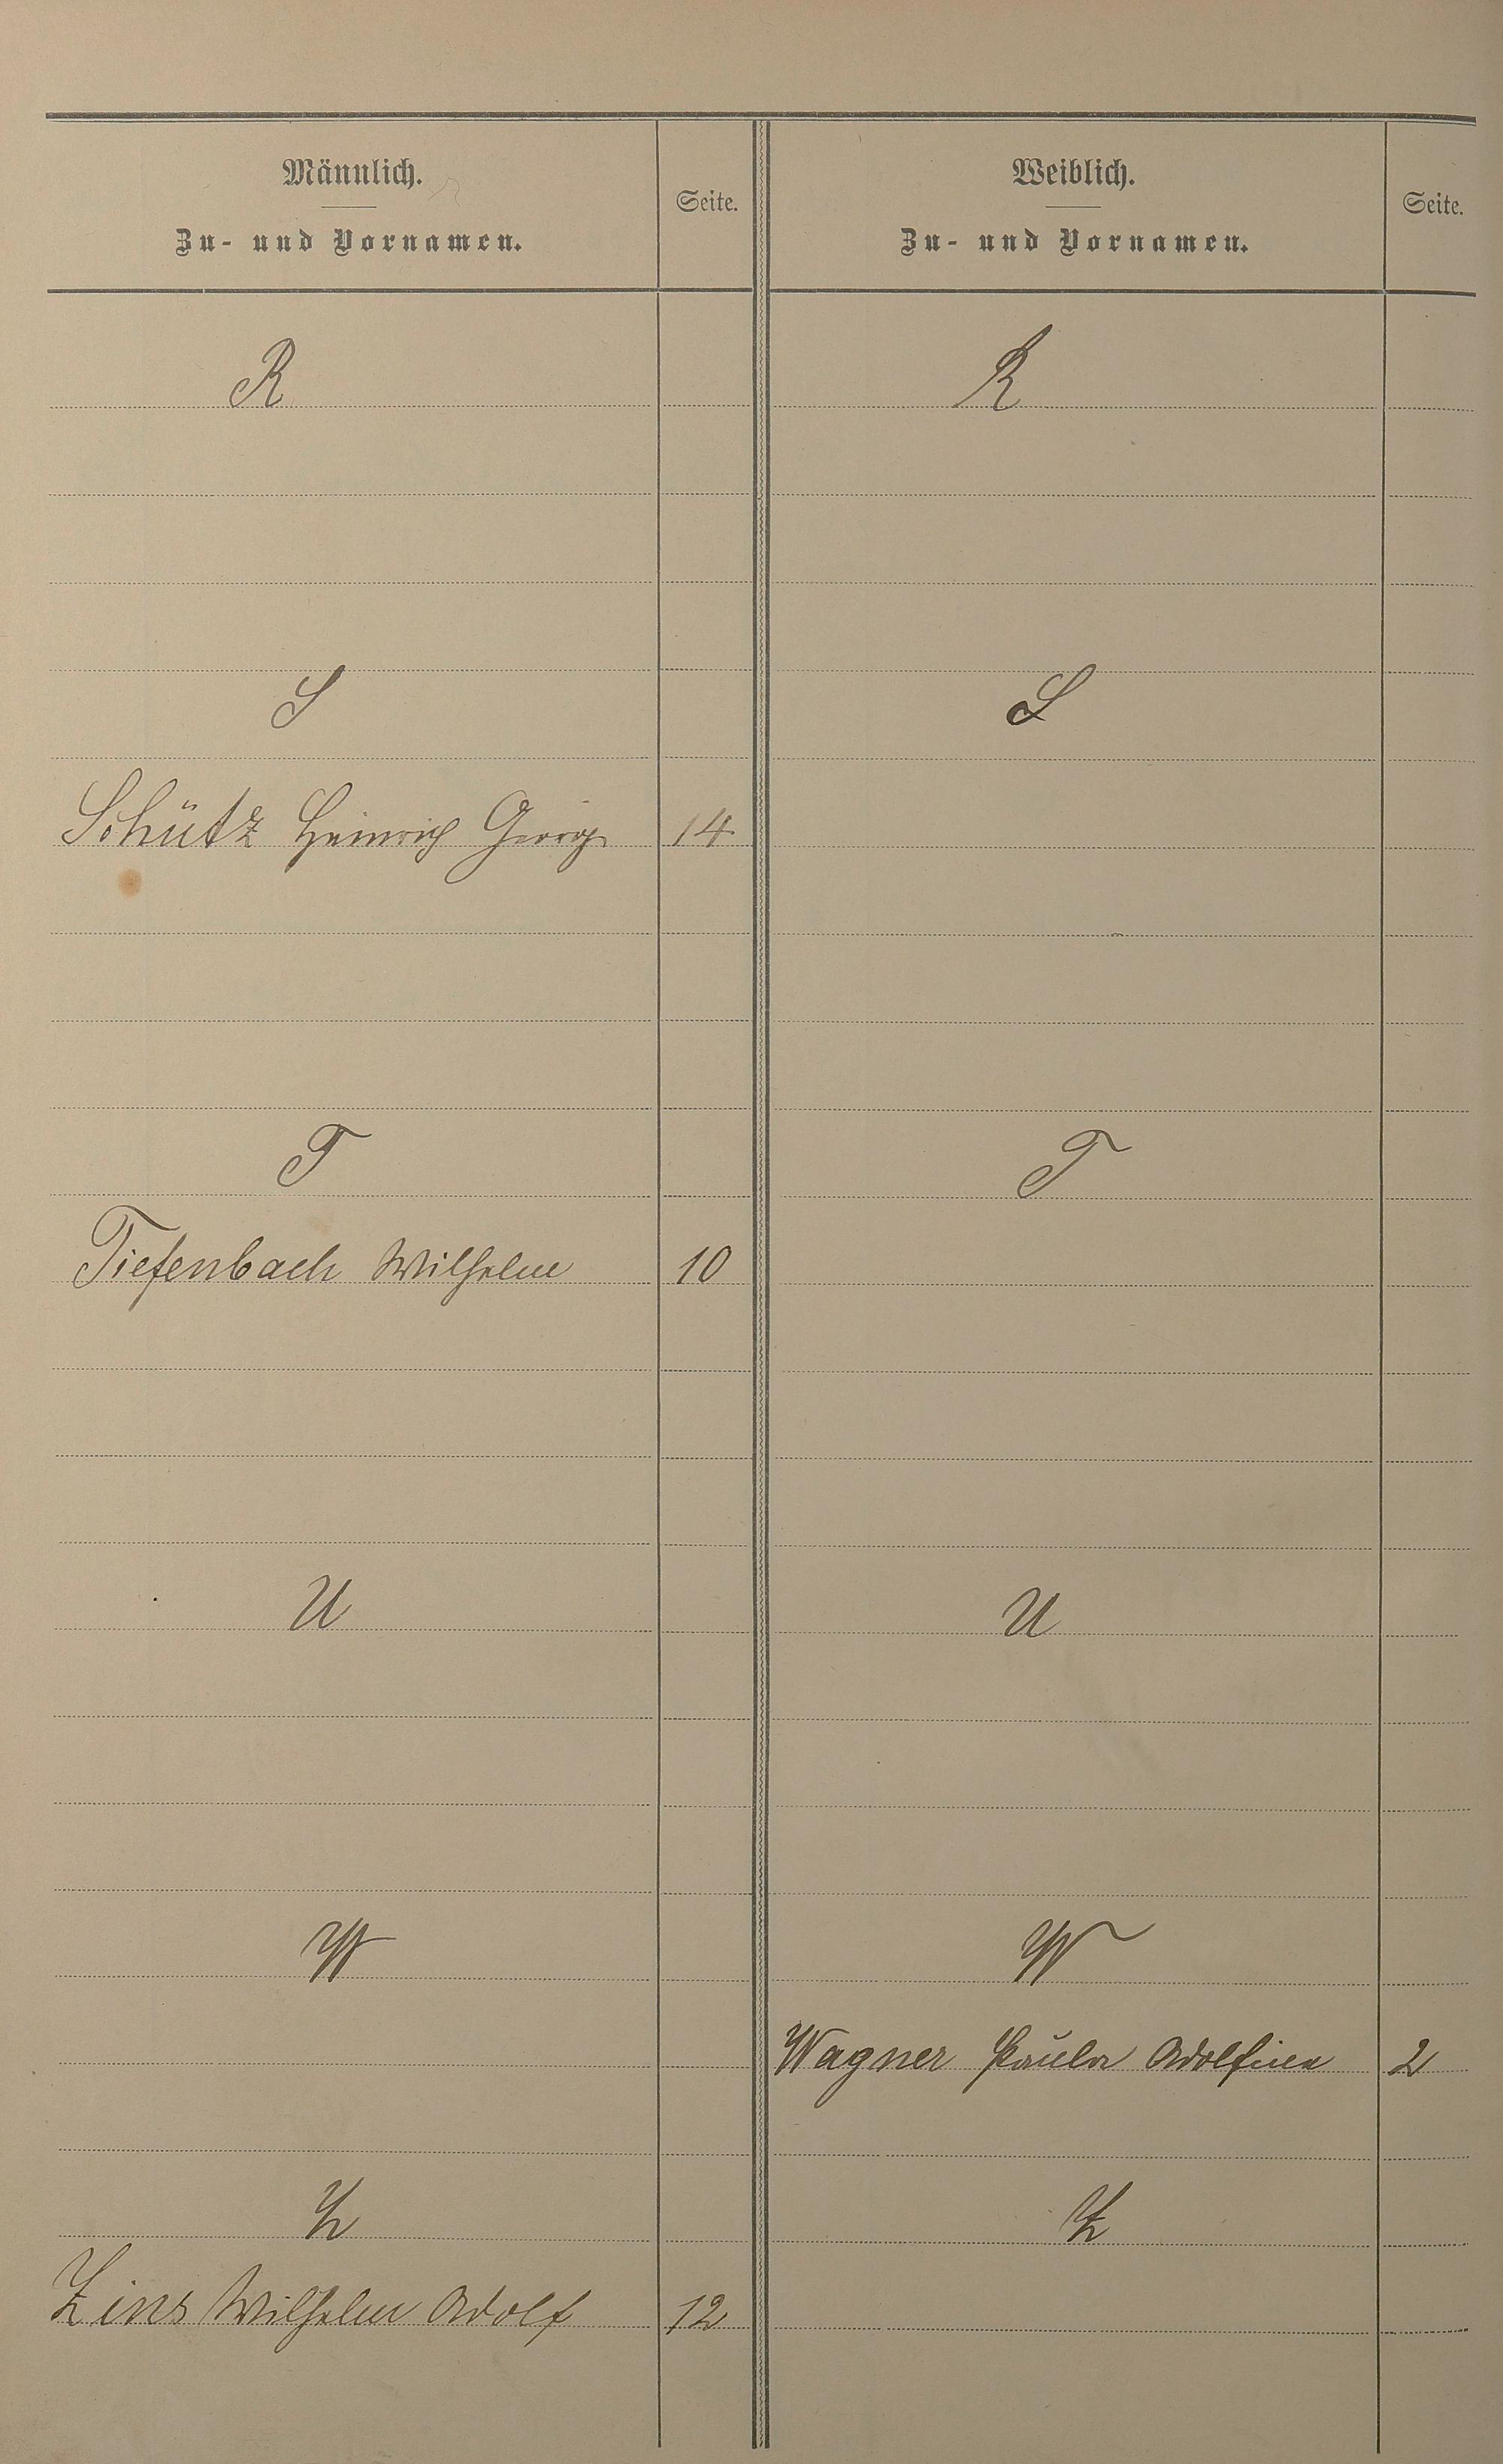 Männlich.
Zu- und Vornamen.
Seite.
Weiblich.
Zu- und Vornamen.
Seite.
R
R
S
S
Schütz Heinrich Georg
14
T
T
Tiefenbach Wilhelm
10
U
U
W
W
Wagner Paula Adolfine
2
Z
Z
Zins Wilhelm Adolf
12